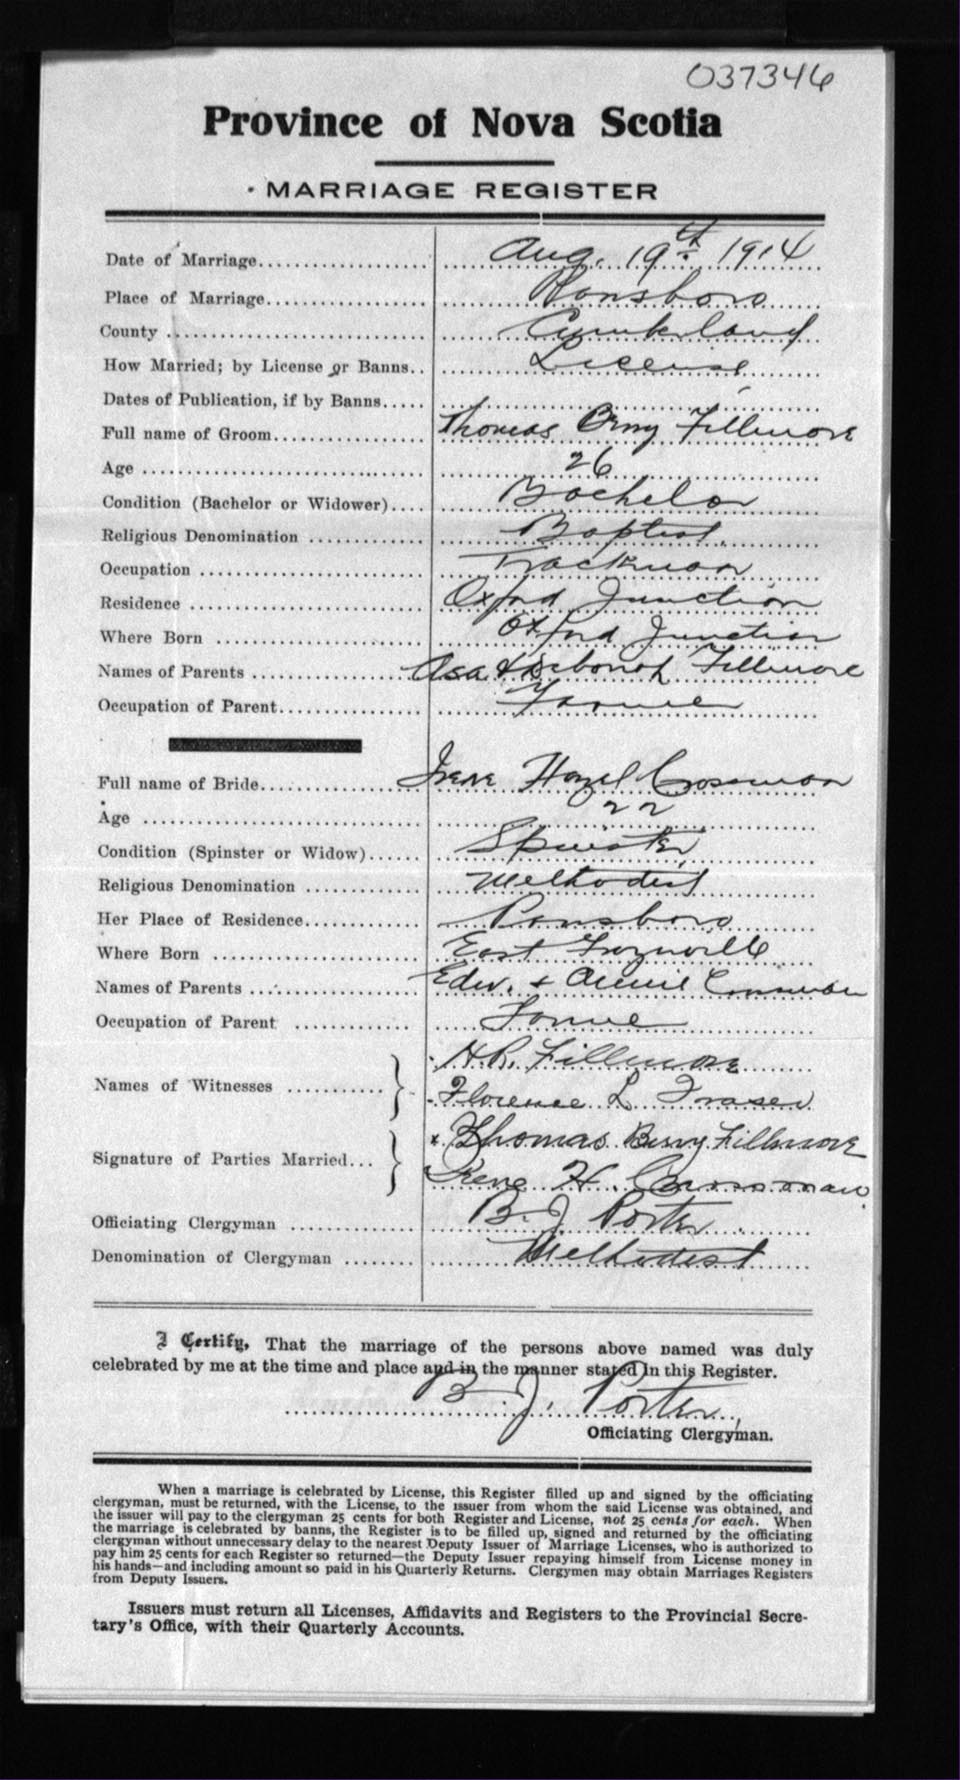 037346
Province of Nova Scotia
MARRIAGE REGISTER
Date of Marriage Aug. 19th 1914
Place of Marriage Ponsboro
County Cumberland
How Married; by License or Banns License
Dates of Publication, if by Banns
Full name of Groom Thomas Berry Fillmore
Age 26
Condition (Bachelor or Widower) Bachelor
Religious Denomination Baptist
Occupation Trackman
Residence Oxford Junction
Where Born Oxford Junction
Names of Parents Asa & Deborah Fillmore
Occupation of Parent Farmer
Full name of Bride Irene Hazel Crossman
Age 22
Condition (Spinster or Widow) Spinster
Religious Denomination Methodist
Her Place of Residence Ponsboro
Where Born East
Names of Parents Edw. & Crossman
Occupation of Parent
Names of Witnesses H.R. Fillmore
Florence L Fraser
Signature of Parties Married x Thomas Berry Fillmore
Irene H. Crossman
Officiating Clergyman B. J. Porter
Denomination of Clergyman Methodist
I Certify, That the marriage of the persons above named was duly
celebrated by me at the time and place and in the manner stated in this Register.
B. J. Porter
Officiating Clergyman.
When a marriage is celebrated by License, this Register filled up and signed by the officiating
clergyman, must be returned, with the License, to the issuer from whom the said License was obtained, and
the issuer will pay to the clergyman 25 cents for both Register and License, not 25 cents for each. When
the marriage is celebrated by banns, the Register is to be filled up, signed and returned by the officiating
clergyman without unnecessary delay to the nearest Deputy Issuer of Marriage Licenses, who is authorized to
pay him 25 cents for each Register so returned—the Deputy Issuer repaying himself from License money in
his hands—and including amount so paid in his Quarterly Returns. Clergymen may obtain Marriages Registers
from Deputy Issuers.
Issuers must return all Licenses, Affidavits and Registers to the Provincial Secre-
tary's Office, with their Quarterly Accounts.